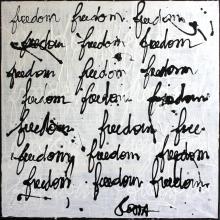 freedom freedom freedom
freedom freedom freedom
freedom freedom freedom
freedom freedom freedom
freedom freedom free
freedom freedom freedom
freedom freedom freedom